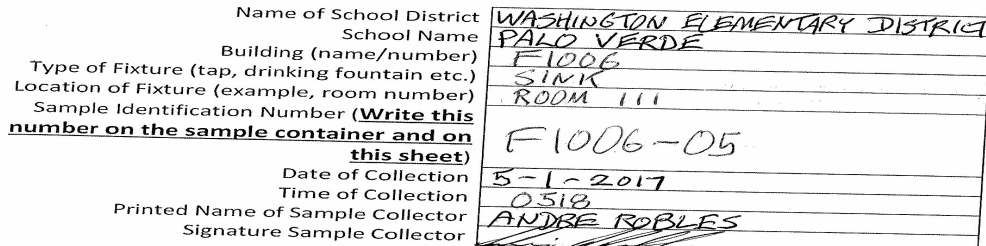 Name of School District WASHINGTON ELEMENTARY DISTRICT
School Name PALO VERDE
Building (name/number) F1006
Type of Fixture (tap, drinking fountain etc.) SINK
Location of Fixture (example, room number) ROOM 111
Sample Identification Number (Write this
number on the sample container and on
this sheet) F1006-05
Date of Collection 5-1-2017
Time of Collection 0518
Printed Name of Sample Collector ANDRE ROBLES
Signature Sample Collector